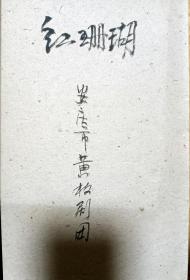 红珊瑚
安庆市黄梅剧团